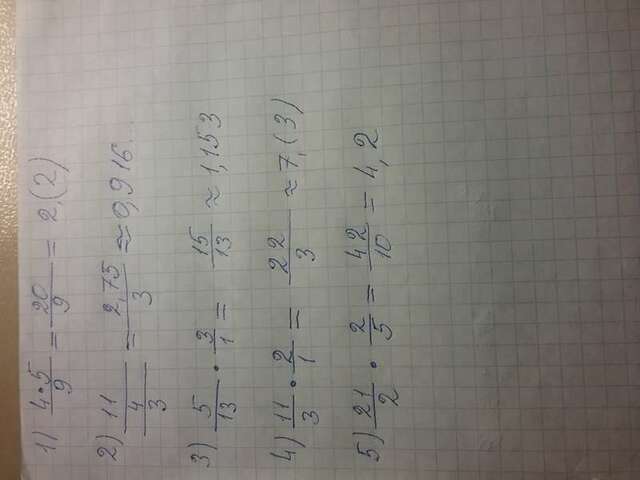 1) 4•5/9 = 20/9 = 2,(2)
2) 11/4/3 = 2,75/3 ≈ 0,916...
3) 5/13 • 3/1 = 15/13 ≈ 1,153
4) 11/3 • 2/1 = 22/3 ≈ 7,(3)
5) 21/2 • 2/5 = 42/10 = 4,2